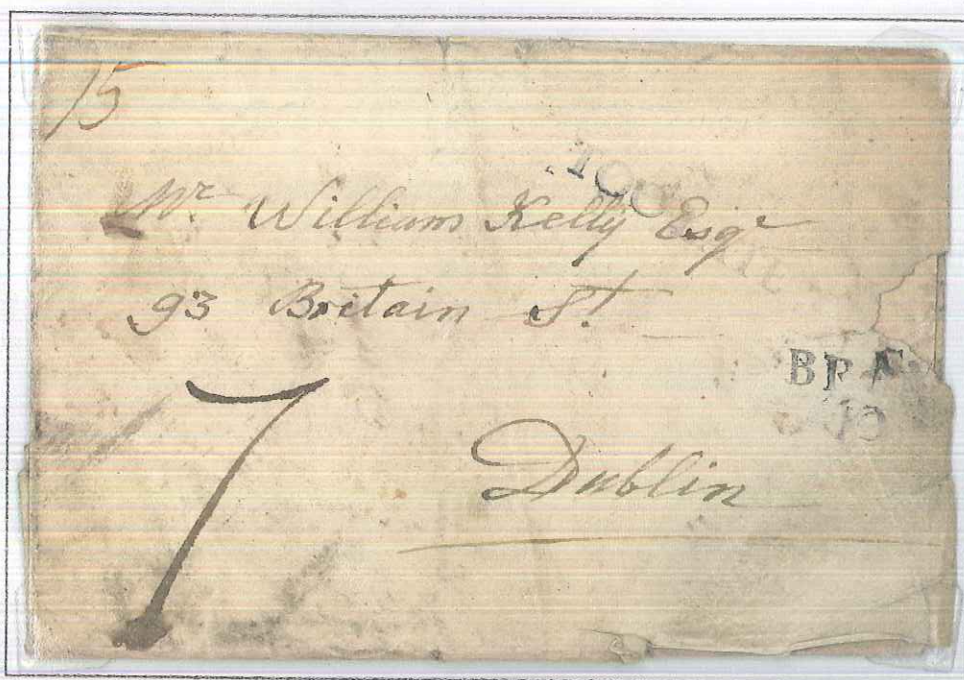 15
Mr William Kelly Esqr
93 Britain St.
7
Dublin